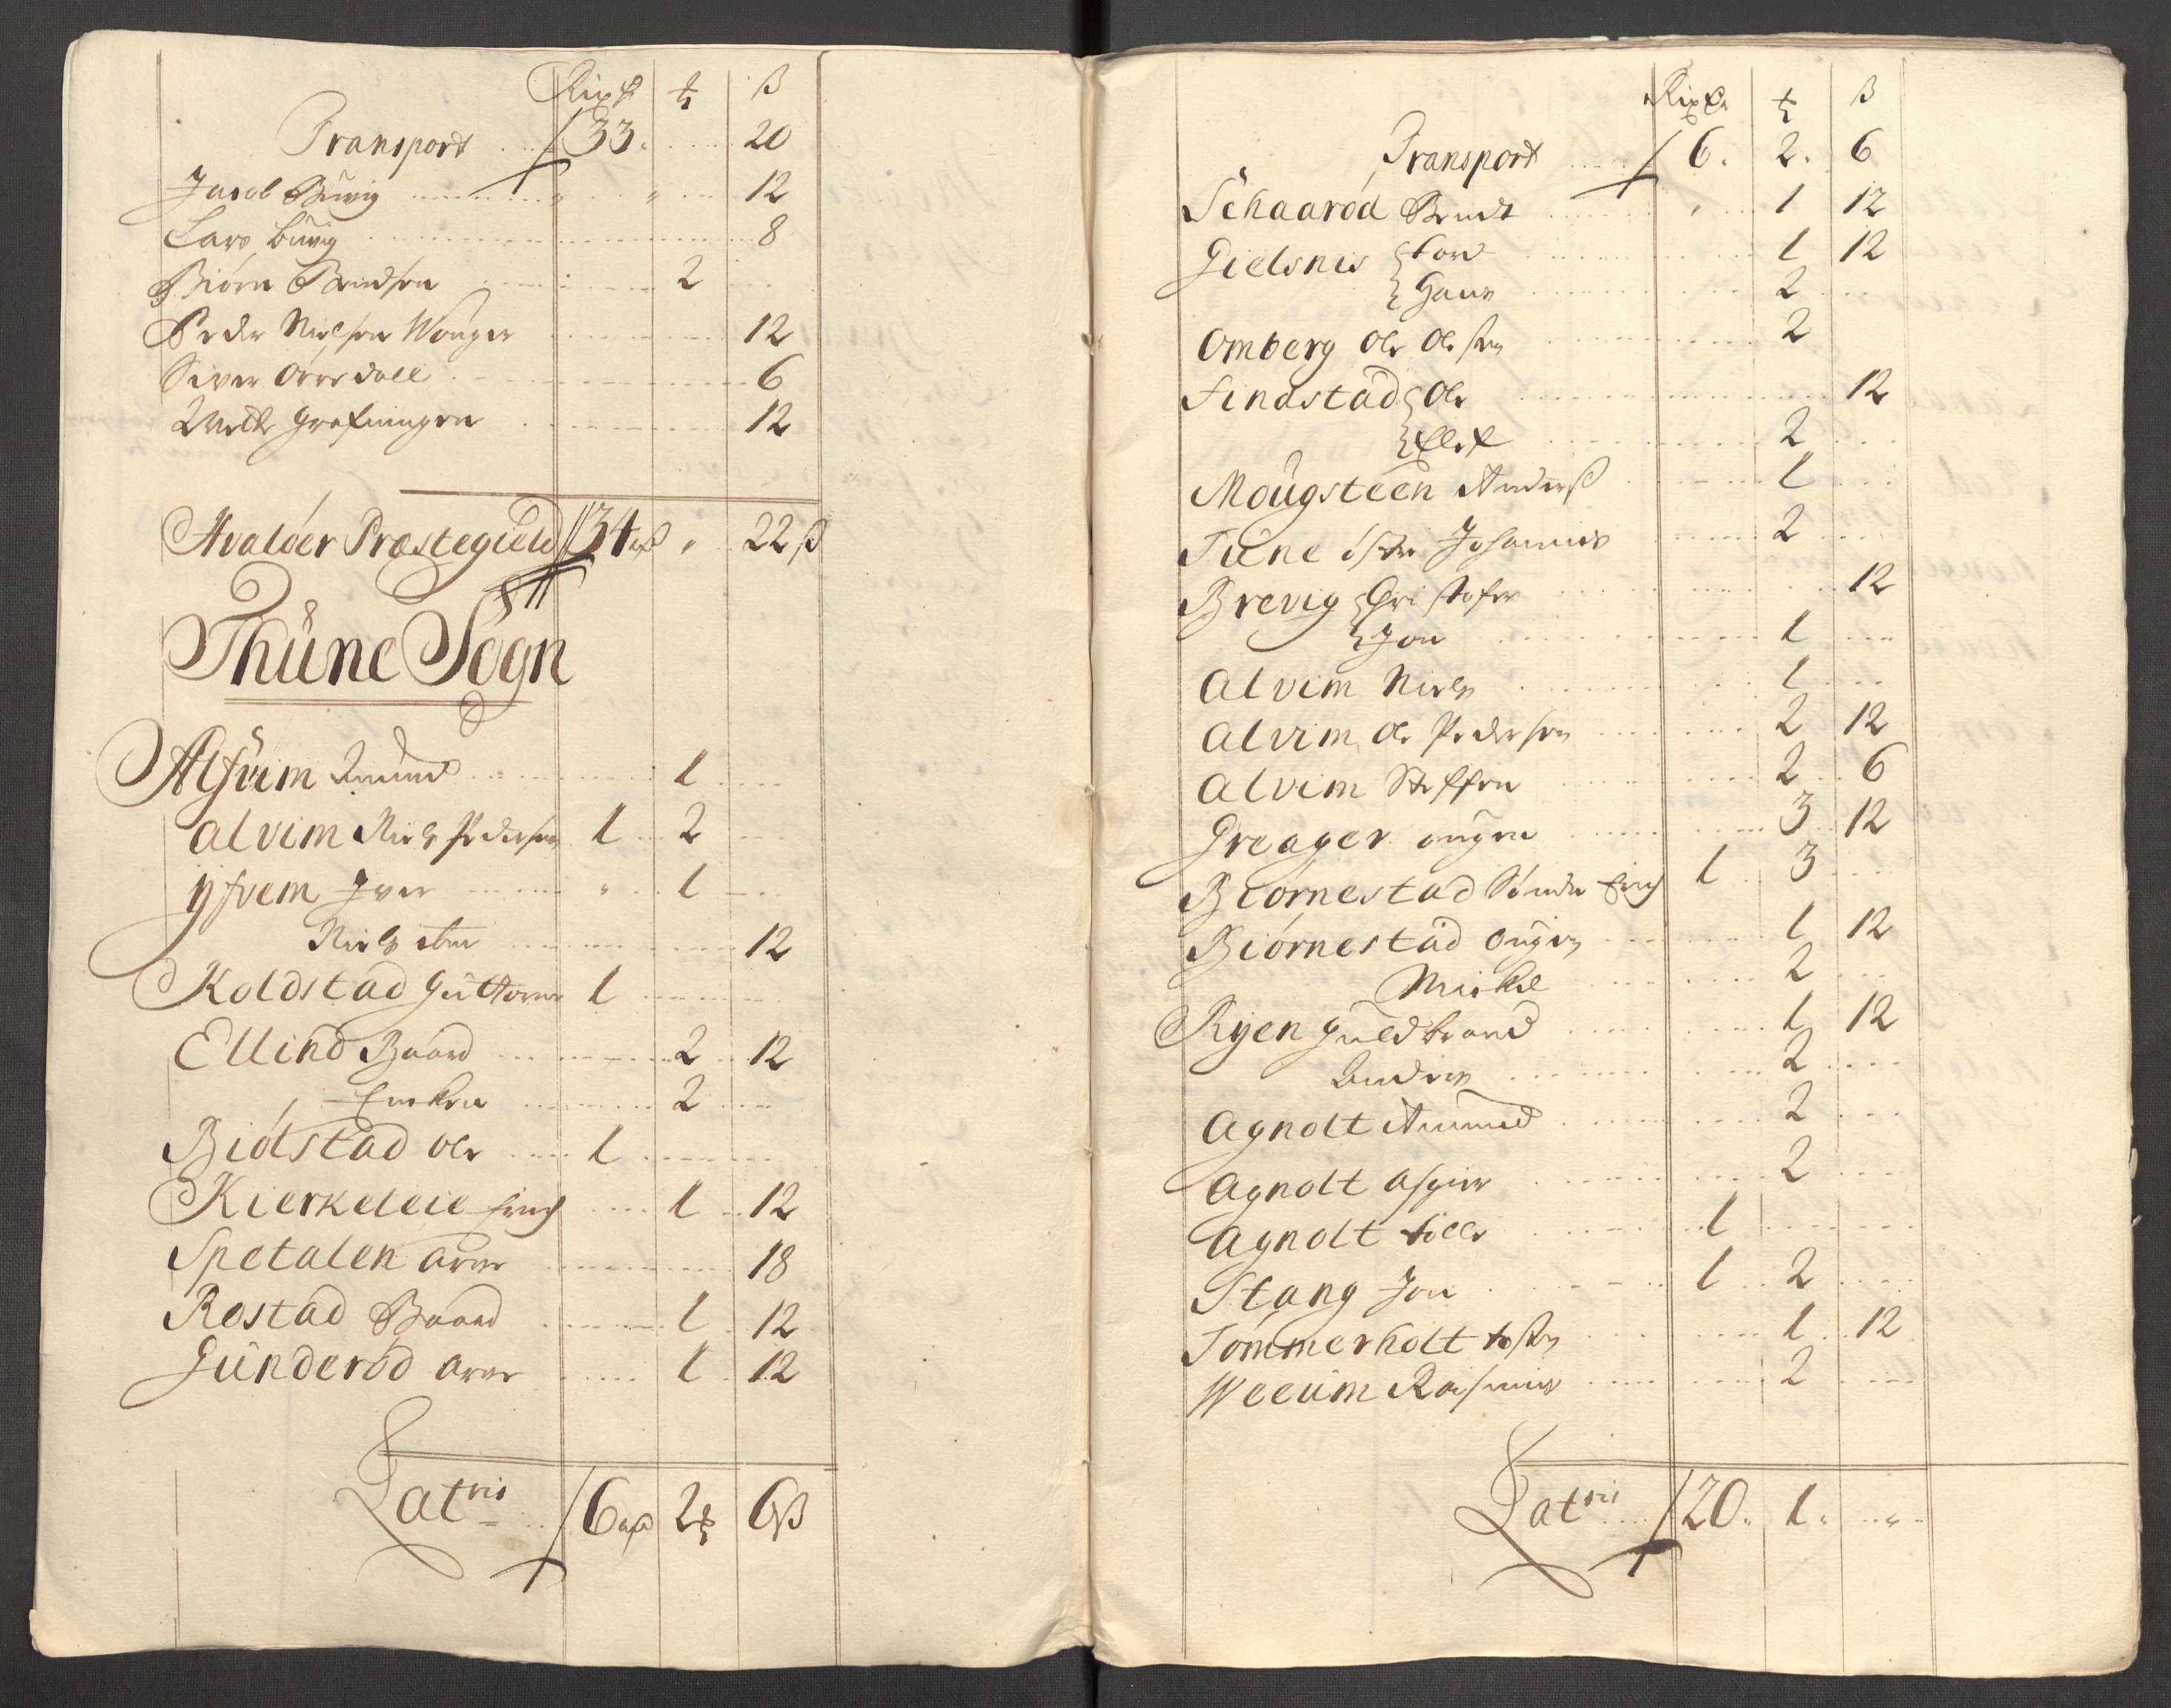 Rixd ₰ ß
Transport 33. 20
Jacob Buvig 12
Lars buvig 8
Biørn Bendsen 2
Peder Nielsen Wonger 12
Siver Orredall 6
Grefningen 12
Hvaløer Præstegield 34 22 ß
Thune Sogn
Alfvim Amund 1
Alvim Niels Pedersen 1 2
yfvem Iver 1
Niels 12
Koldstad Guttorm 1
Ellind Baard 2 12
Enken 2
Biótstad Ole 1
Kierkeleie Erich 1 12
Spetalen Arne 18
Rostad Baard 1 12
Gunderød Arne 1 12
Latris 6 2 6 ß
Rixd ₰ ß
Transport 6. 2. 6
Schaarød Bendt 1 12
Gielsnis Tord 1 12
Hans 2
Omberg Ole Olsen 2
Findstad Ole 12
2
Mougsteen Anders 1
Tune øster Johannes 2
Brevig Christofer 12
Jon 1
Alvim Niels 1
Alvim Ole Pedersen 2 12
Alvim Steffen 2 6
Greager ougen 3 12
Biørnestad Søndre Erich 1 3
Biørnestad ougen 1 12
Michel 2
Ryen Guldbrand 1 12
Anders 2
Agnolt Amund 2
Agnolt Asgier 2
Agnolt 1
Stang Jon 1 2
Tommerholt 1 12
Weeum Rasmus 2
Latris 20. 1.